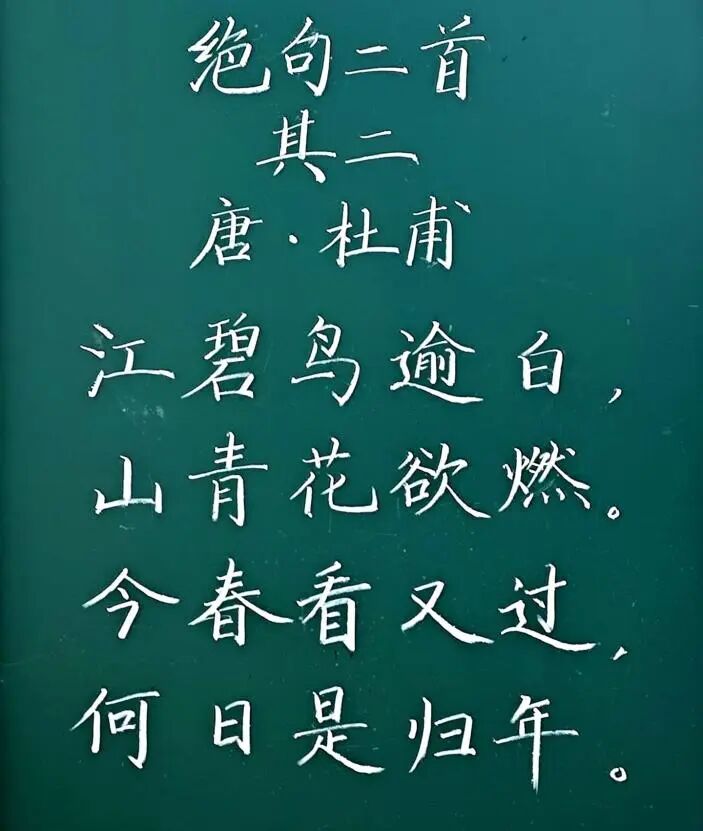 绝句二首
其二
唐·杜甫
江碧鸟逾白，
山青花欲燃。
今春看又过，
何日是归年。